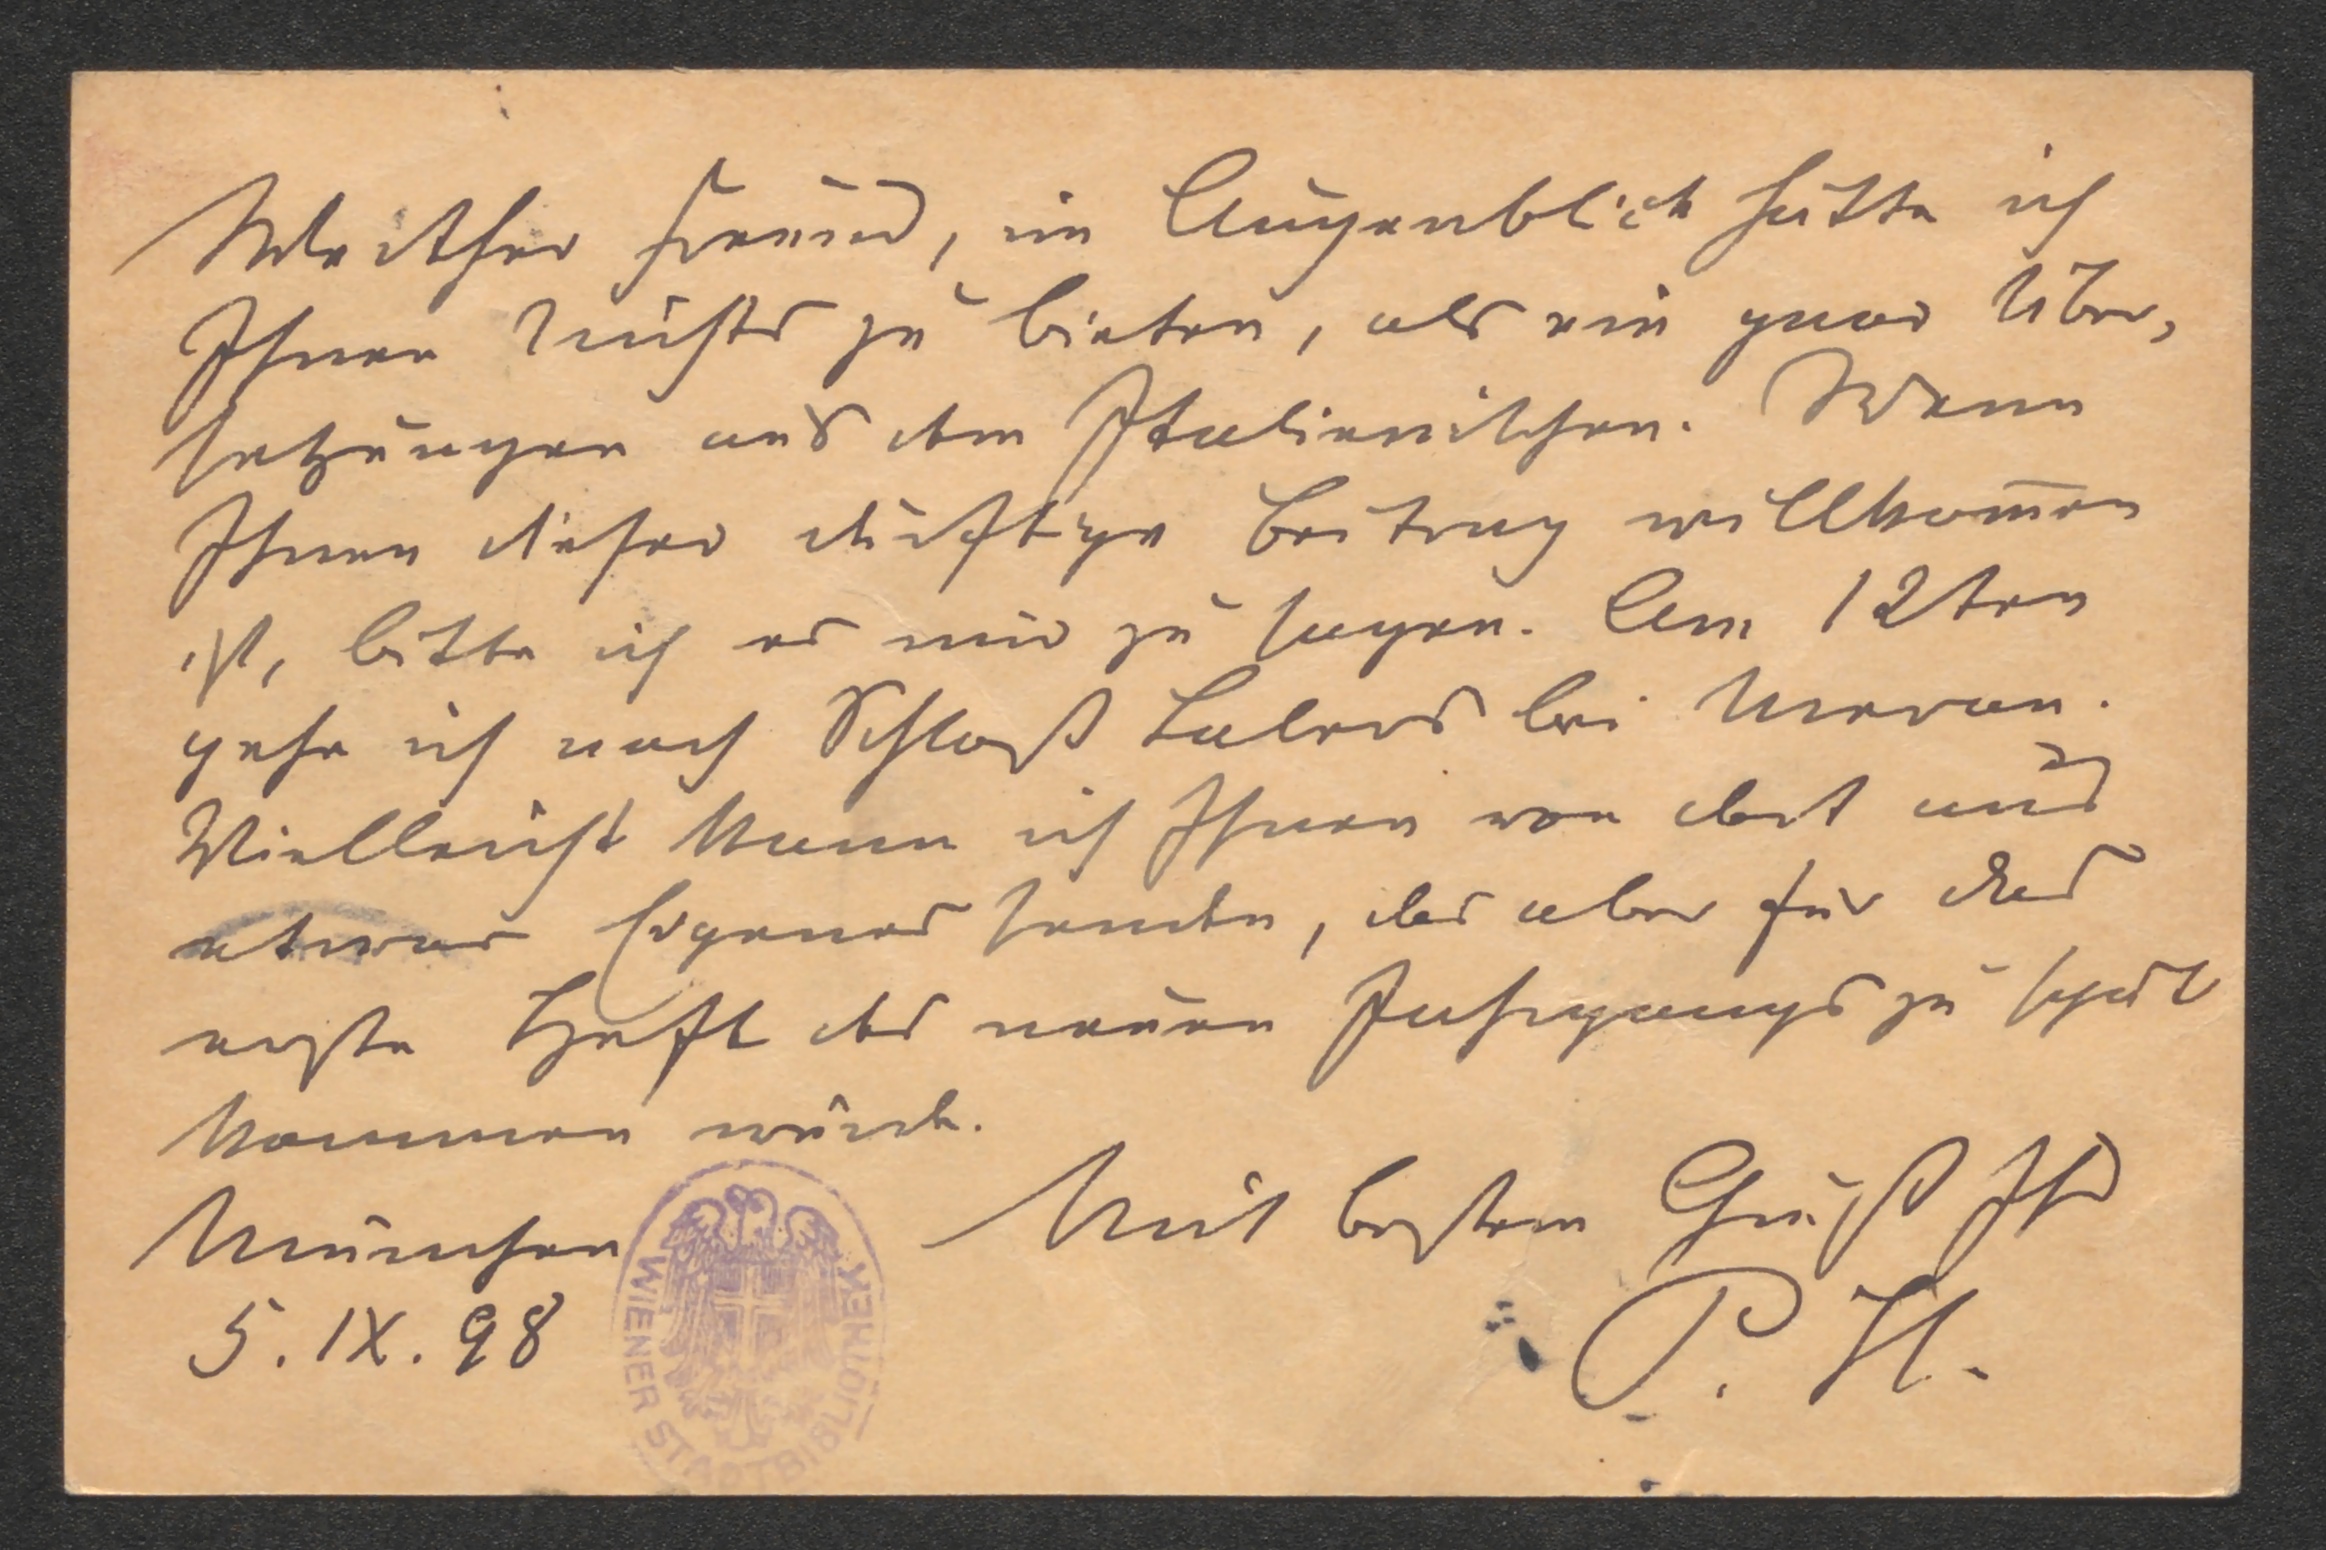 Werther Freund, im Augenblick hätte ich
Ihnen Nichts zu bieten, als ein paar Über-
setzungen aus dem Italienischen. Wenn
Ihnen dieser dürftige Beitrag willkom̄en
ist, bitte ich es mir zu sagen. Am 12ten
gehe ich nach Schloß Labers bei Meran.
Vielleicht kann ich Ihnen von dort aus
etwas Eigenes senden, das aber für das
erste Heft des neuen Jahrgangs zu spät
kommen würde.
Mit bestem Gruß Ihr
München
5. IX. 98
P. H.
WIENER STADTBIBLIOTHEK